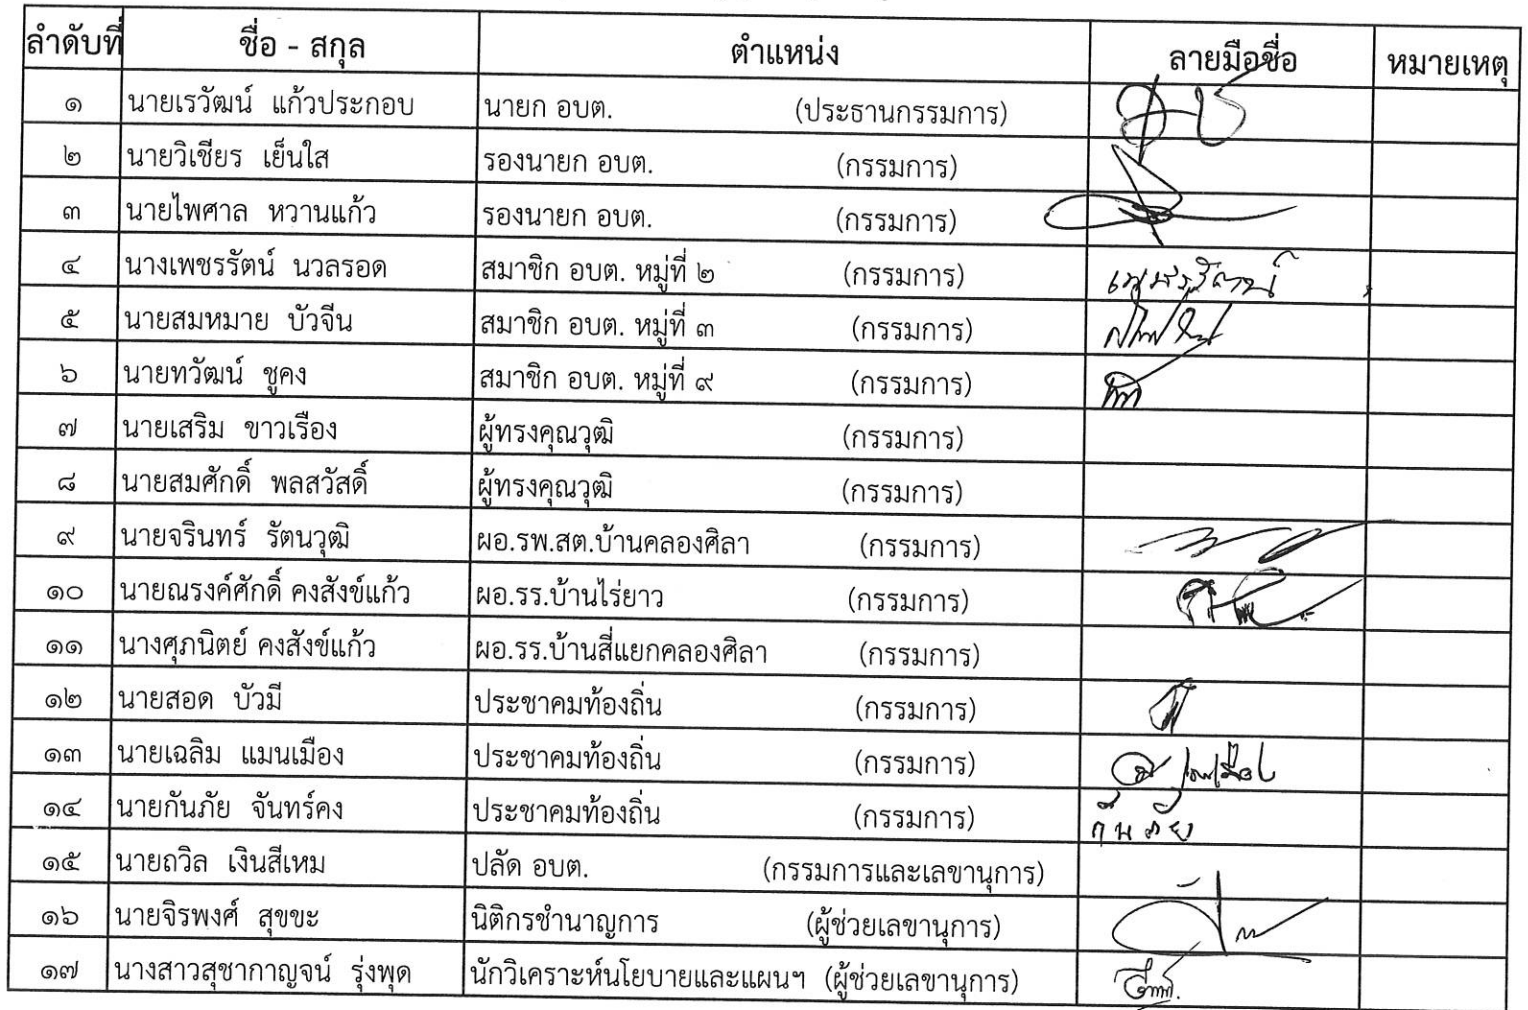 ลำดับที่ ชื่อ - สกุล ตำแหน่ง ลายมือชื่อ หมายเหตุ
๑ นายเรวัฒน์ แก้วประกอบ นายก อบต. (ประธานกรรมการ)
๒ นายวิเชียร เย็นใส รองนายก อบต. (กรรมการ)
๓ นายไพศาล หวานแก้ว รองนายก อบต. (กรรมการ)
๔ นางเพชรรัตน์ นวลรอด สมาชิก อบต. หมู่ที่ ๒ (กรรมการ) เพชรรัตน์
๕ นายสมหมาย บัวจีน สมาชิก อบต. หมู่ที่ ๓ (กรรมการ)
๖ นายทวัฒน์ ชูคง สมาชิก อบต. หมู่ที่ ๙ (กรรมการ)
๗ นายเสริม ขาวเรือง ผู้ทรงคุณวุฒิ (กรรมการ)
๘ นายสมศักดิ์ พลสวัสดิ์ ผู้ทรงคุณวุฒิ (กรรมการ)
๙ นายจรินทร์ รัตนวุฒิ ผอ.รพ.สต.บ้านคลองศิลา (กรรมการ)
๑๐ นายณรงค์ศักดิ์ คงสังข์แก้ว ผอ.รร.บ้านไร่ยาว (กรรมการ)
๑๑ นางศุภนิตย์ คงสังข์แก้ว ผอ.รร.บ้านสี่แยกคลองศิลา (กรรมการ)
๑๒ นายสอด บัวมี ประชาคมท้องถิ่น (กรรมการ)
๑๓ นายเฉลิม แมนเมือง ประชาคมท้องถิ่น (กรรมการ)
๑๔ นายกันภัย จันทร์คง ประชาคมท้องถิ่น (กรรมการ) กันภัย
๑๕ นายถวิล เงินสีเหม ปลัด อบต. (กรรมการและเลขานุการ)
๑๖ นายจิรพงศ์ สุขขะ นิติกรชำนาญการ (ผู้ช่วยเลขานุการ)
๑๗ นางสาวสุชากาญจน์ รุ่งพุด นักวิเคราะห์นโยบายและแผนฯ (ผู้ช่วยเลขานุการ)